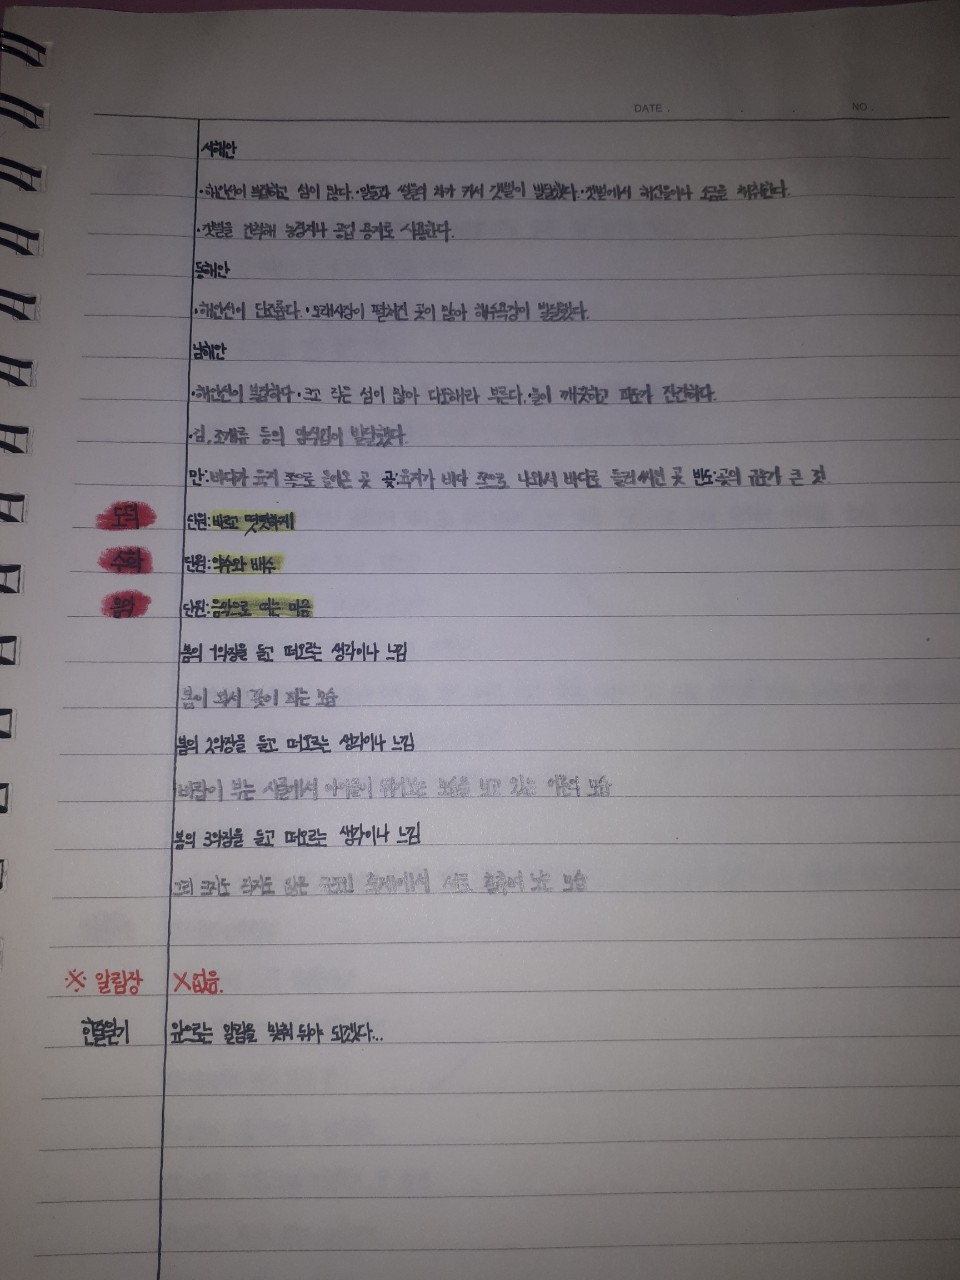 DATE . . . NO .
서해안
·해안선이 복잡하고 섬이 많다. ·밀물과 썰물의 차가 커서 갯벌이 발달했다. ·갯벌에서 해산물이나 소금을 채취한다.
·갯벌을 간척해 농경지나 공업 용지로 사용한다.
동해안
·해안선이 단조롭다. ·모래사장이 펼쳐진 곳이 많아 해수욕장이 발달했다.
남해안
·해안선이 복잡하다 ·크고 작은 섬이 많아 다도해라 부른다. ·물이 깨끗하고 파도가 잔잔하다.
·김, 조개류 등의 양식업이 발달했다.
만:바다가 육지 쪽으로 들어온 곳 곶:육지가 바다 쪽으로 나와서 바다로 둘러싸인 곳 반도:곶의 규모가 큰 것
도덕 단원:바르고 떳떳하게
수학 단원:약수와 배수
음악 단원:음악으로 여는 마음
봄의 1악장을 듣고 떠오르는 생각이나 느낌
봄이 와서 꽃이 피는 모습
봄의 2악장을 듣고 떠오르는 생각이나 느낌
바람이 부는 시골에서 아이들이 뛰어노는 모습을 보고 있는 어른의 모습
봄의 3악장을 듣고 떠오르는 생각이나 느낌
그리 크지도 작지도 않은 축제에서 서로 춤추며 노는 모습
※ 알림장 X없음.
한줄쓰기 앞으로는 알람을 맞춰 둬야 되겠다...